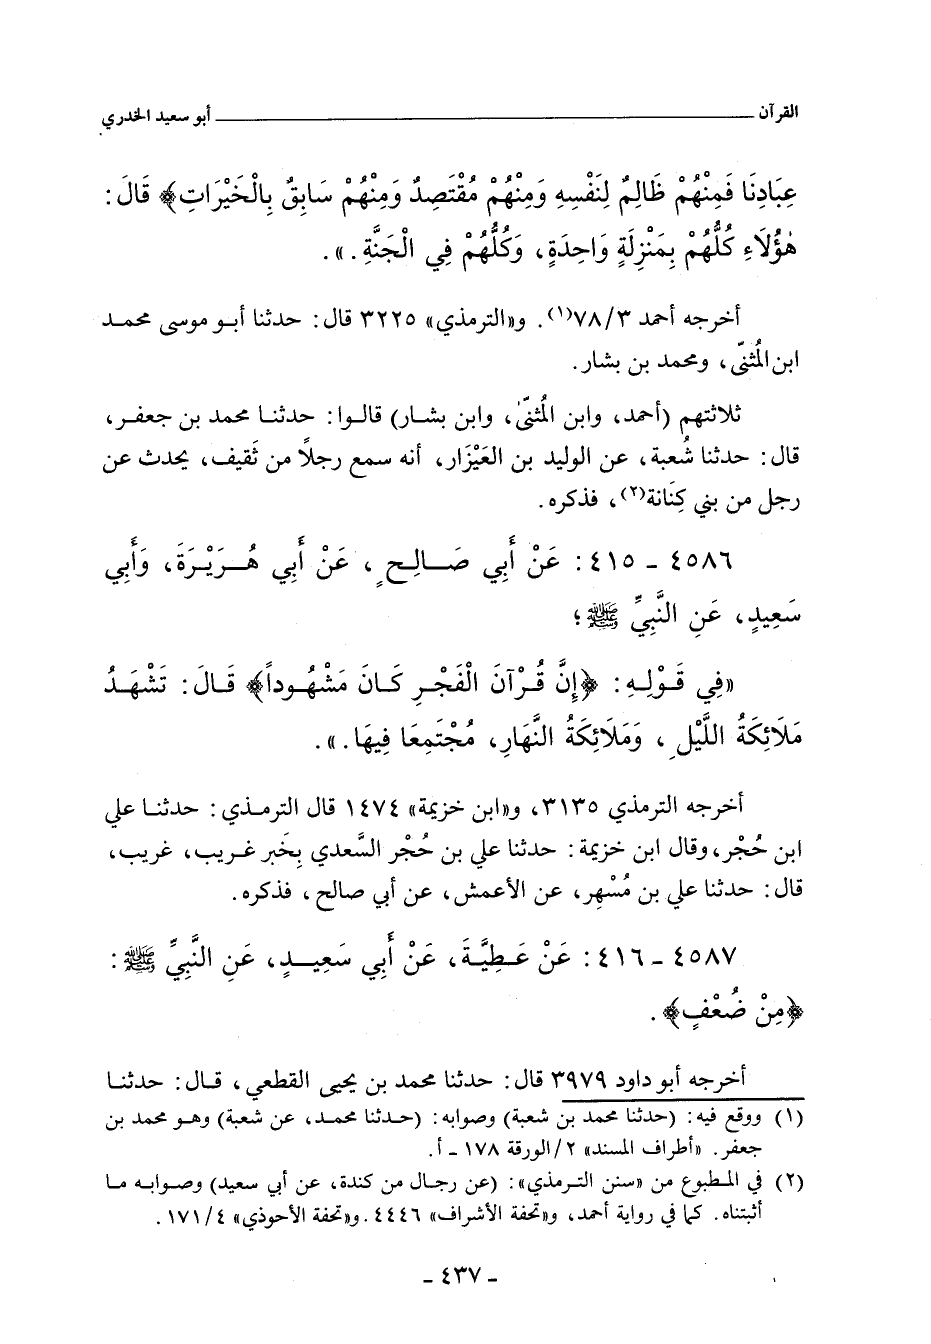 القرآن ــــــــــ أبو سعيد الخدري
عِبَادِنَا فَمِنْهُمْ ظَالِمٌ لِنَفْسِهِ وَمِنْهُمْ مُقْتَصِدٌ وَمِنْهُمْ سَابِقٌ بِالْخَيْرَاتِ﴾ قَالَ :
هٰؤُلَاءِ كُلُّهُمْ بِمَنْزِلَةٍ وَاحِدَةٍ ، وَكُلُّهُمْ فِي الْجَنَّةِ . » .
أخرجه أحمد ٧٨/٣(١). و«الترمذي» ٣٢٢٥ قال : حدثنا أبو موسى محمد
ابن المُثنّى ، ومحمد بن بشار .
ثلاثتهم (أحمد، وابن المُثنّى، وابن بشار) قالوا : حدثنا محمد بن جعفر ،
قال : حدثنا شُعبة ، عن الوليد بن العَيْزَار ، أنه سمع رجلاً من ثَقيف ، يحدث عن
رجل من بني كِنَانة(٢) ، فذكره .
٤٥٨٦ - ٤١٥ : عَنْ أَبِي صَالِحٍ ، عَنْ أَبِي هُرَيْرَةَ ، وَأَبِي
سَعِيدٍ ، عَنِ النَّبِيِّ ﷺ ؛
«فِي قَوْلِهِ : ﴿إِنَّ قُرْآنَ الْفَجْرِ كَانَ مَشْهُوداً﴾ قَالَ : تَشْهَدُ
مَلَائِكَةُ اللَّيْلِ ، وَمَلَائِكَةُ النَّهَارِ ، مُجْتَمِعَا فِيهَا . » .
أخرجه الترمذي ٣١٣٥ ، و«ابن خزيمة» ١٤٧٤ قال الترمذي : حدثنا علي
ابن حُجْر ، وقال ابن خزيمة : حدثنا علي بن حُجْر السَّعدي بِخَبر غريب ، غريب ،
قال : حدثنا علي بن مُسْهِر ، عن الأعمش ، عن أبي صالح ، فذكره .
٤٥٨٧ - ٤١٦ : عَنْ عَطِيَّةَ ، عَنْ أَبِي سَعِيدٍ ، عَنِ النَّبِيِّ ﷺ :
﴿مِنْ ضُعْفٍ﴾ .
أخرجه أبو داود ٣٩٧٩ قال : حدثنا محمد بن يحيى القطعي ، قال : حدثنا
(١) ووقع فيه : (حدثنا محمد بن شعبة) وصوابه : (حدثنا محمد، عن شعبة) وهو محمد بن
جعفر . «أطراف المسند» ٢/الورقة ١٧٨ - أ .
(٢) في المطبوع من «سنن الترمذي» : (عن رجال من كندة ، عن أبي سعيد) وصوابه ما
أثبتناه . كما في رواية أحمد ، و«تحفة الأشراف» ٤٤٤٦ . و«تحفة الأحوذي» ١٧١/٤ .
- ٤٣٧ -